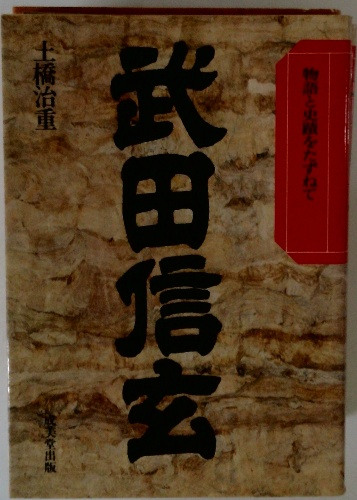 物語と史蹟をたずねて
武田信玄
土橋治重
成美堂出版